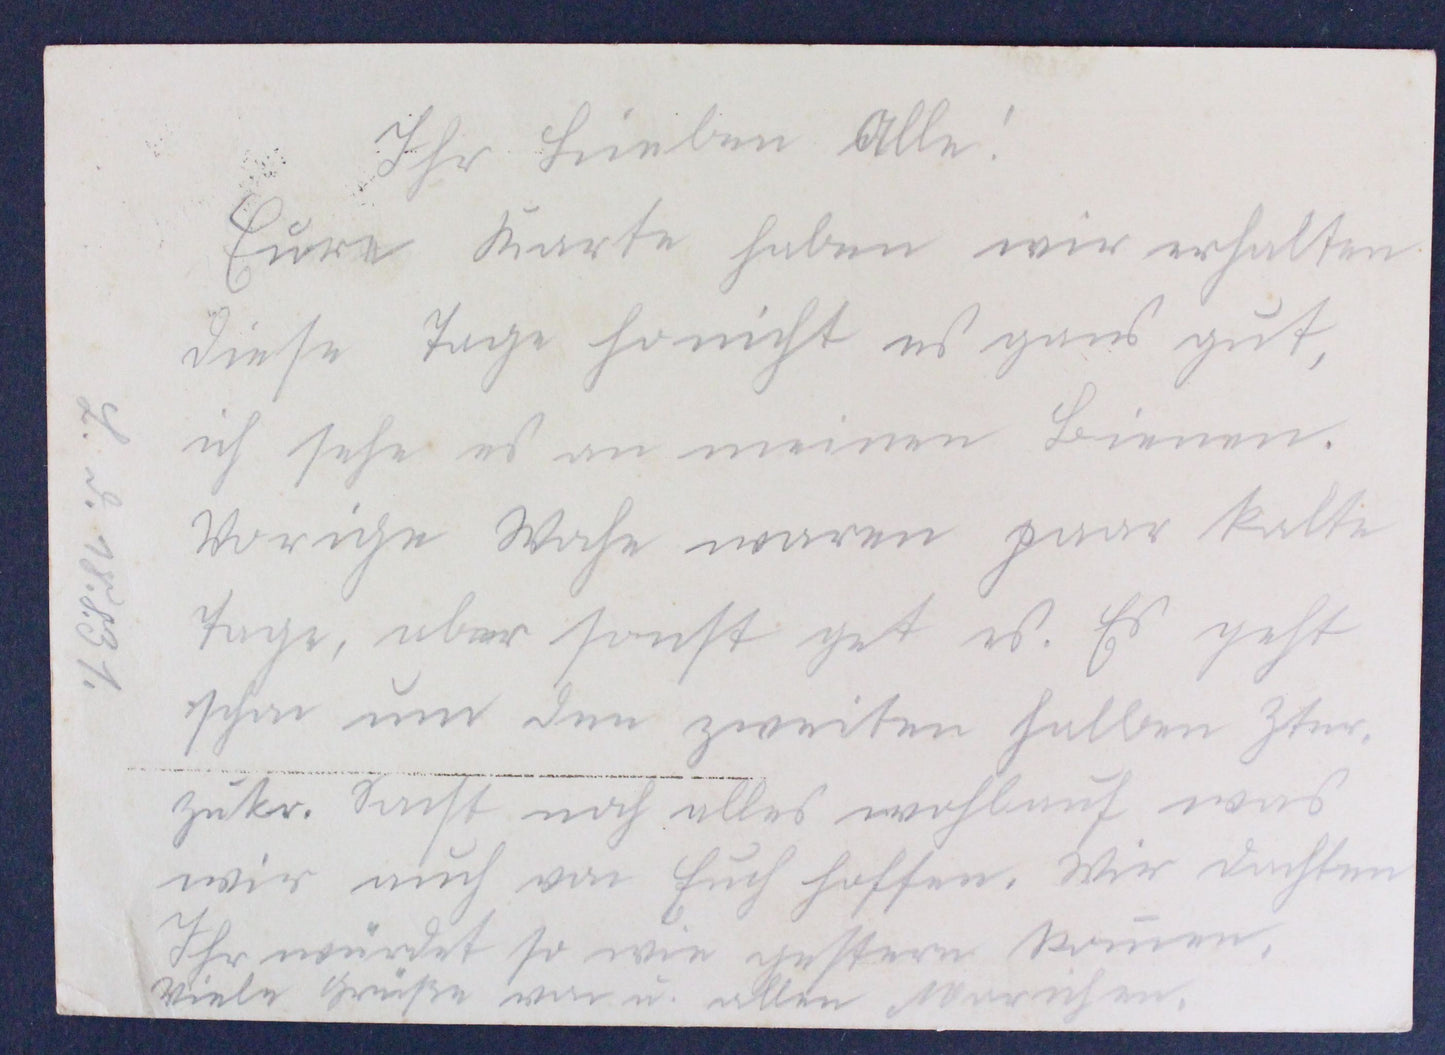 Ihr Lieben Alle!
Eure Karte haben wir erhalten
diese Tage honicht es ganz gut,
ich sehe es an meinen Bienen.
Vorige Woche waren paar kalte
Tage, aber sonst get es. Es geht
schon um den zweiten halben Ztnr.
Zukr. Sonst noch alles wohlauf was
wir auch von Euch hoffen. Wir dachten
Ihr würdet so wie gestern komen.
Viele Grüße von u. allen
L. d. 18.5.31.